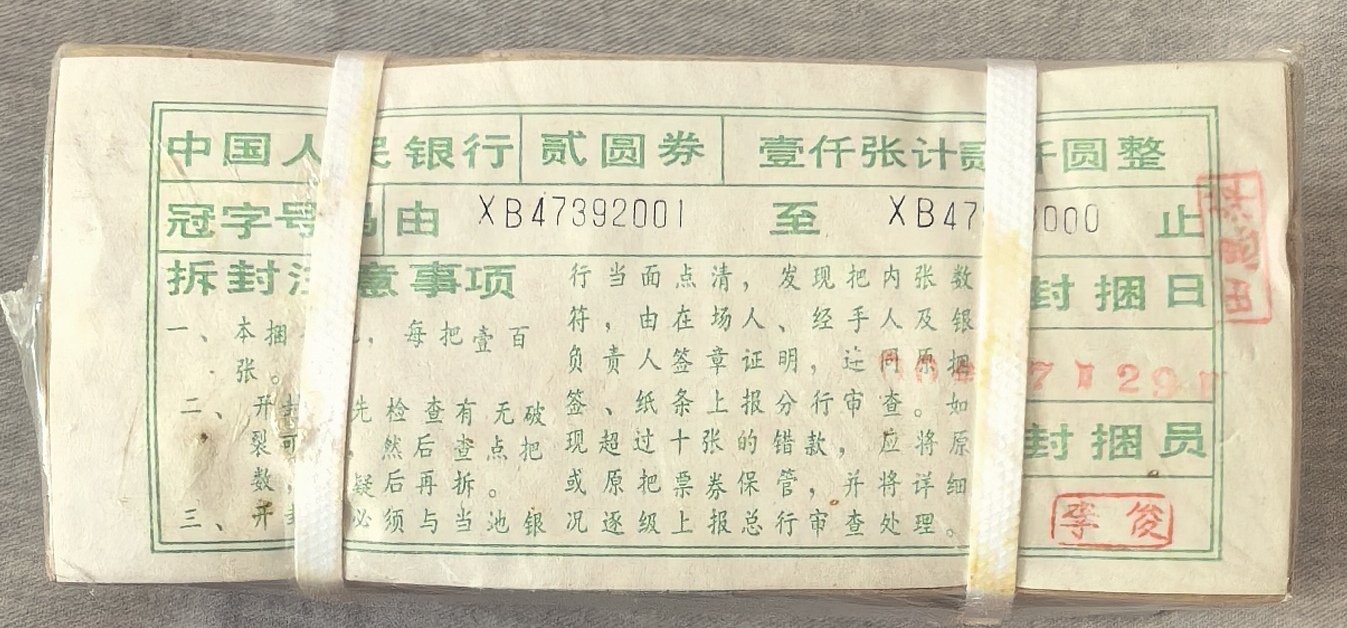 中国人民银行 贰圆券 壹仟张计贰仟圆整
冠字号码 由 XB47392001 至 XB47 3000 止
拆封注意事项
一、本捆 ,每把壹百
张。
二、开封 先检查有无破
裂可 ,然后查点把
数, 疑后再拆。
三、开封 必须与当池银
行当面点清,发现把内张数
符,由在场人、经手人及银
负责人签章证明,连同原捆
签、纸条上报分行审查。如
现超过十张的错款,应将原
或原把票券保管,并将详细
况逐级上报总行审查处理。
封捆日
7 29
封捆员
李俊